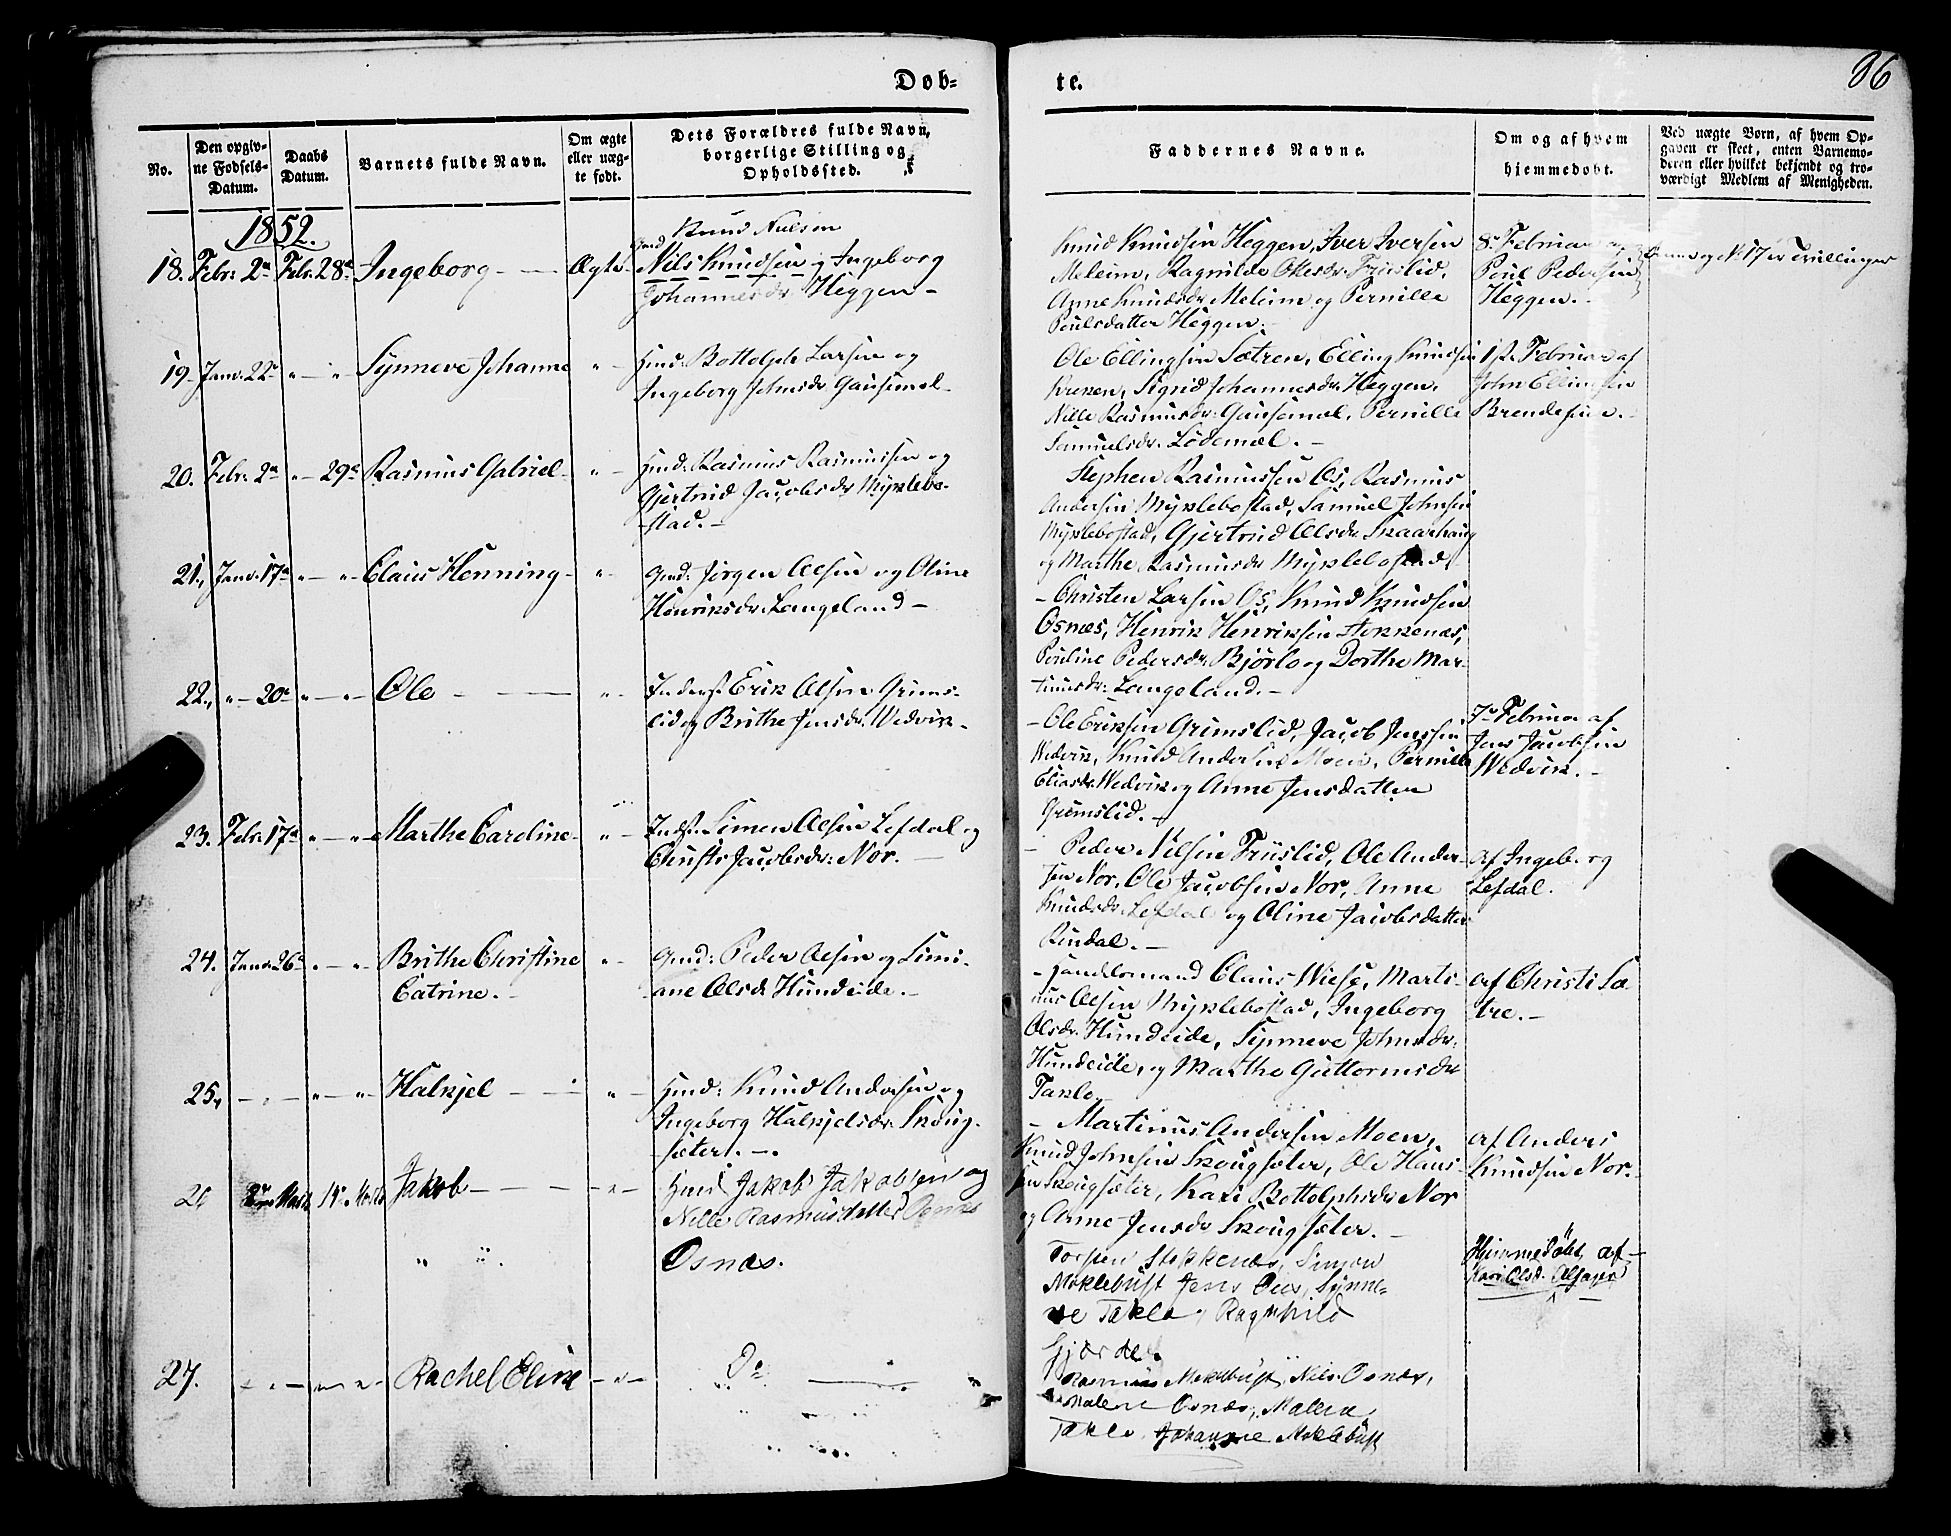 Døb-
te.
86
No.
Den opgiv-
ne Fødsels-
Datum.
Daabs
Datum.
Barnets fulde Navn.
Om ægte
eller uæg-
te født.
Dets Forældres fulde Navn,
borgerlige Stilling og
Opholdssted.
Faddernes Navne.
Om og af hvem
hjemmedøbt.
Ved uægte Børn, af hvem Op-
gaven er skeet, enten Barnemo-
deren eller hvilket bekjendt og tro-
værdigt Medlem af Menigheden.
1852.
18. Febr: 2n Febr. 28n Ingeborg Ægte
Knud Nilsen
Nils Knudsen og Ingeborg
Johannesdr Heggen
Knud Knudsen Heggen, Iver Iversen
Meleim, Ragnilde Frøislid,
Anne Knudsdr Meleim og Pernille
Poulsdatter Heggen.
8n Februar
Poul Pedersen
Heggen.
og No 17 er Trillinger
19. Janr. 22n " " Synneve Johanne "
Hmd: Bottolph Larsen og
Ingeborg Johnsdr Gausemel
Ole Ellingsen Sætren, Elling Knudsen
Kroken, Sigrid Johannesdr. Heggen,
Nille Rasmusdr: Gausemel, Pernille
Samuelsdr. Lødemel.
1st Februar af
John Ellingsen
20. Febr. 2n " 29n Rasmus Gabriel "
Hmd: Rasmus Rasmussen og
Gjertrud Jacobsdr Myklebo-
stad.
Stephen Rasmussen Os, Rasmus
Andersen Myklebostad, Samuel Johnsen
Myklebostad, Gjertrud Olsdr Skaarhaug
og Marthe Rasmusdr Myklebostad
21. Janr. 17n " " Claus Henning "
Gmd: Jørgen Olsen og Oline
Henriksdr. Langeland
Christen Larsen Os, Knud Knudsen
Osnæs, Henrik Henriksen Stokkenæs,
Pouline Pedersdr. Bjørlo og Dorthe Mar-
tinusdr: Langeland.
22. " 20n " " Ole "
Inderst Erik Olsen Grims-
lid og Brithe Jensdr. Wedvik
Ole Eriksen Grimslid, Jacob Jenssen
Wedvik, Knud Andersen Moen, Pernille
Eliasdr. Wedvik og Anne Jensdatter
Grimslid.
7n Februar af
Jens Jacobsen
Wedvik.
23. Febr. 17n " " Marthe Caroline "
Indst: Simen Olsen Lefdal og
Jacobsdr: Nor.
Peder Nilsen Frøislid, Ole Ander-
sen Nor, Ole Jacobsen Nor, Anne
Knudsdr. Lefdal og Oline Jacobsdatter
Rindal.
af Ingeborg
Lefdal.
24. Janr. 26n " " Brithe Christine "
Catrine.
Gmd: Peder Olsen og Simi-
ane Olsdr Hundeide.
Handelsmand Claus Wiese, Marti-
nus Olsen Myklebostad, Ingeborg
Olsdr. Hundeide, Synneve Johnsdr.
Hundeide, og Marthe Guttormsdr
Taklo
af Christi Sæ-
tre.
25. " " " Halkjel "
Hmd: Knud Andersen og
Ingeborg Halkjelsdr. Skoug-
sæter.
Martinus Andersen Moen,
Knud Johnsen Skougsæter, Ole Hans-
sen Skougsæter, Kari Bottolphsdr Nor
og Anne Jensdr Skougsæter.
af Anders
Knudsen Nor.
26 Jakob "
Hmd Jakob Jakobsen og
Nille Rasmusdatter Osnæs
" " Osnæs.
Torsten Stokkenæs, Simon
Moklebust Jens Synne-
ve Taklo, Ragnhild
Gjærde
Hjemmedøbt af
Kari Olsd.
27. " " Rachel Eline " Do
Rasmus Moklebust, Nils Osnæs,
Malene Osnæs, Malena
Taklo, Johanne Moklebust